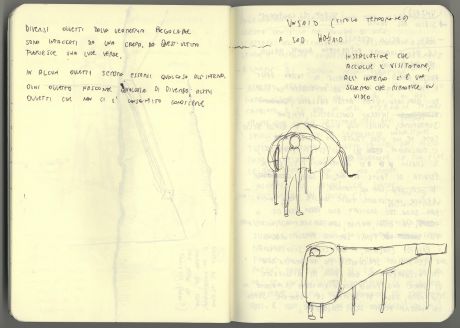 DIVERSI OGGETTI DALLA GEOMETRIA REGOLARE
SONO INTRECCIATI DA UNA CORDA, DA QUEST'ULTIMA
FUORIESCE UNA LUCE VERDE,
IN ALCUNI OGGETTI SEMBRA ESSERCI QUALCOSA ALL'INTERNO,
OGNI OGGETTO NASCONDE QUALCOSA DI DIVERSO, ALTRI
OGGETTI CHE NON CI È CONSENTITO CONOSCERE
UNSAID (TITOLO TEMPORANEO)
A SAD
INSTALLAZIONE CHE
ACCOGLIE IL VISITATORE,
ALL'INTERNO C'È UNO
SCHERMO CHE RIPRODUCE UN
VIDEO.